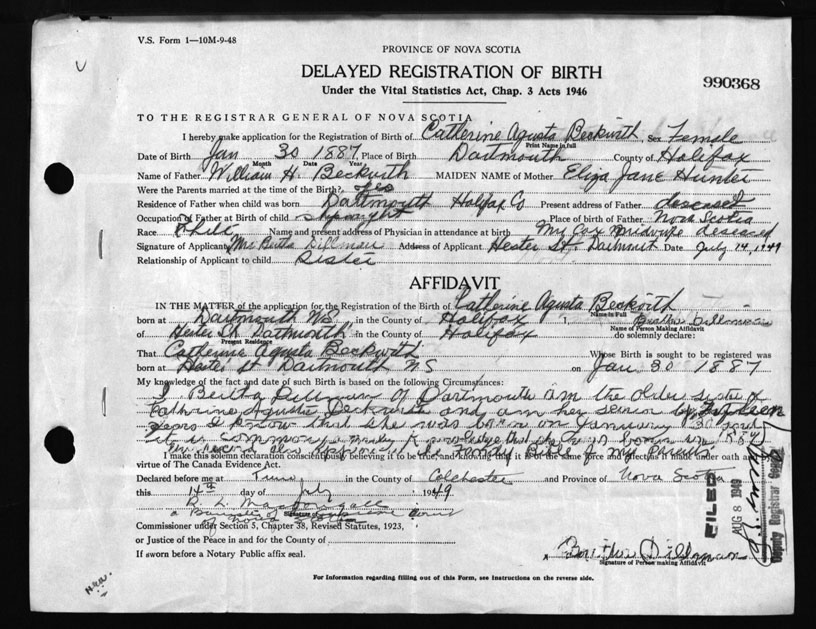 V.S. Form 1—10M-9-48
PROVINCE OF NOVA SCOTIA
DELAYED REGISTRATION OF BIRTH
990368
Under the Vital Statistics Act, Chap. 3 Acts 1946
TO THE REGISTRAR GENERAL OF NOVA SCOTIA
I hereby make application for the Registration of Birth of Catherine Agusta Beckwith, Sex Female
Print Name in full
Date of Birth Jan 30 1887, Place of Birth Dartmouth County of Halifax
Month Date Year
Name of Father William H. Beckwith MAIDEN NAME of Mother Eliza Jane Hunter
Were the Parents married at the time of Birth? yes
Residence of Father when child was born Dartmouth Halifax Co Present address of Father deseased
Occupation of Father at Birth of child Place of birth of Father Nova Scotia
Race White Name and present address of Physician in attendance at birth Mrs Cox Midwife deseased
Signature of Applicant Mrs Bertha Dillman Address of Applicant Hester St. Dartmouth Date July 14, 1949
Relationship of Applicant to child Sister
AFFIDAVIT
IN THE MATTER of the application for the Registration of the Birth of Catherine Agusta Beckwith
Name in Full
born at Dartmouth NS in the County of Halifax I, Bertha Dillman
Name of Person Making Affidavit
of Hester St Dartmouth in the County of Halifax do solemnly declare:
Present Residence
That Catherine Agusta Beckwith Whose Birth is sought to be registered was
born at Hester St Dartmouth N S on Jan 30 1887
My knowledge of the fact and date of such Birth is based on the following Circumstances:
I Bertha Dillman of Dartmouth am the older sister of
Catherine Agusta Beckwith and am her senior by
years I know that she was born on January 30 and
it is common family knowledge that she was born in
Family Bible of my Parents
I make this solemn declaration conscientiously believing it to be true, and knowing that it is of the same force and effect as if made under oath and
virtue of The Canada Evidence Act.
Declared before me at Truro in the County of Colchester and Province of Nova Scotia
this 14th day of July 1949
a Barrister of Supreme Court
Signature of
of Nova Scotia
Commissioner under Section 5, Chapter 38, Revised Statutes, 1923,
or Justice of the Peace in and for the County of
If sworn before a Notary Public affix seal.
Bertha Dillman
Signature of Person making Affidavit
For Information regarding filling out of this Form, see Instructions on the reverse side.
FILED
AUG 8 1949
Deputy Registrar General